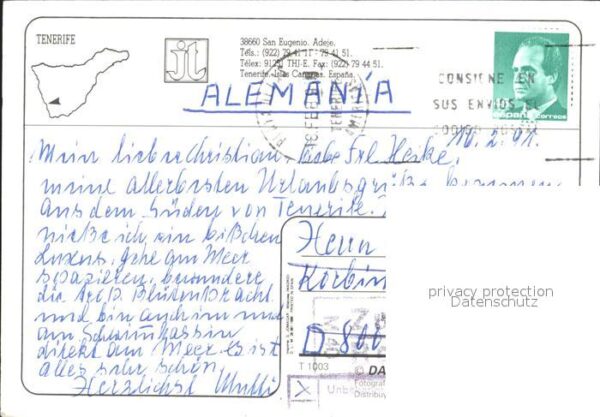 TENERIFE
jt
38660 San Eugenio. Adeje.
Teneriffe. Islas Canarias. España.
ALEMANÍA
CONSIGNE EN
SUS ENVIOS EL
CODIGO POSTAL
España correos
16.2.91.
Mein lieber Christian, liebe Frl. Heske,
meine allerbesten Urlaubsgrüße kommen
aus dem Süden von Tenerife.
nieße ich ein bißchen
Luxus, gehe am Meer
spazieren, bewundere
die Blütenpracht
und bin auch im und
am Schwimmbassin
direkt am Meer. es ist
alles sehr schön.
Herzlichst Mutti
Herrn
Korbin
D 800
T 1003
© DA
Fotograf
Distribuy
Unbe
privacy protection
Datenschutz